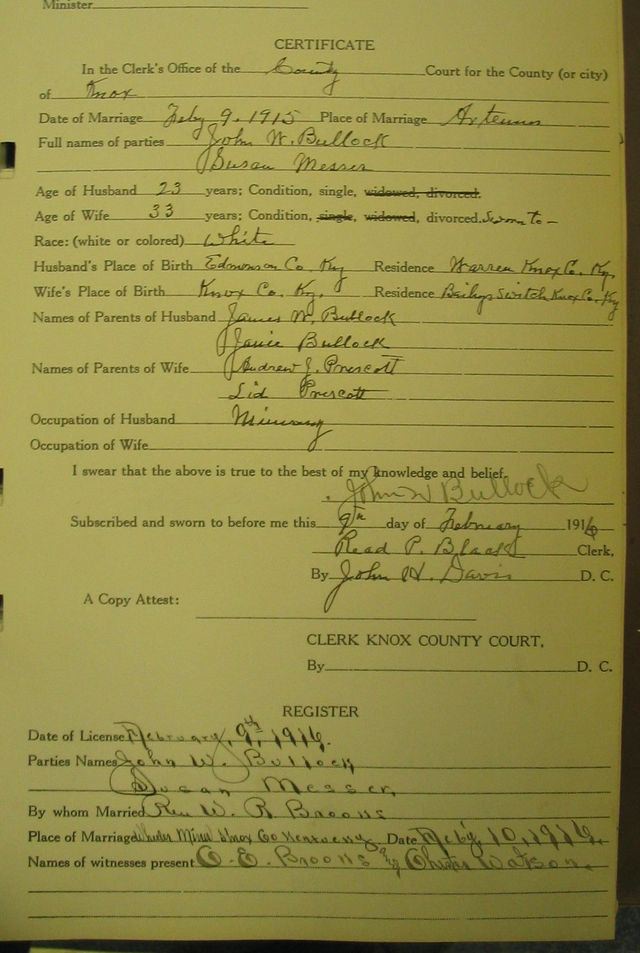 Minister
CERTIFICATE
In the Clerk's Office of the County Court for the County (or city)
of Knox
Date of Marriage Feby 9. 1915 Place of Marriage Artemus
Full names of parties John W. Bullock
Susan Messer
Age of Husband 23 years; Condition, single, widowed, divorced.
Age of Wife 33 years; Condition, single, widowed, divorced. Sworn to -
Race: (white or colored) White
Husband's Place of Birth Edmonson Co. Ky Residence Warren Knox Co. Ky.
Wife's Place of Birth Knox Co. Ky. Residence Switch Knox Co. Ky
Names of Parents of Husband James W. Bullock
Janie Bullock
Names of Parents of Wife Andrew J. Prescott
Lid Prescott
Occupation of Husband Mining
Occupation of Wife
I swear that the above is true to the best of my knowledge and belief.
John W Bullock
Subscribed and sworn to before me this 9th day of February 1916
Read P. Black Clerk,
By John H. Davis D. C.
A Copy Attest:
CLERK KNOX COUNTY COURT,
By D. C.
REGISTER
Date of License February, 9th, 1916.
Parties Names John W. Bullock
Susan Messer,
By whom Married Rev W. R. Broons
Place of Marriage Mines Knox Co Kentucky Date Feby, 10, 1916.
Names of witnesses present C. E. Broons & Chester Watson.